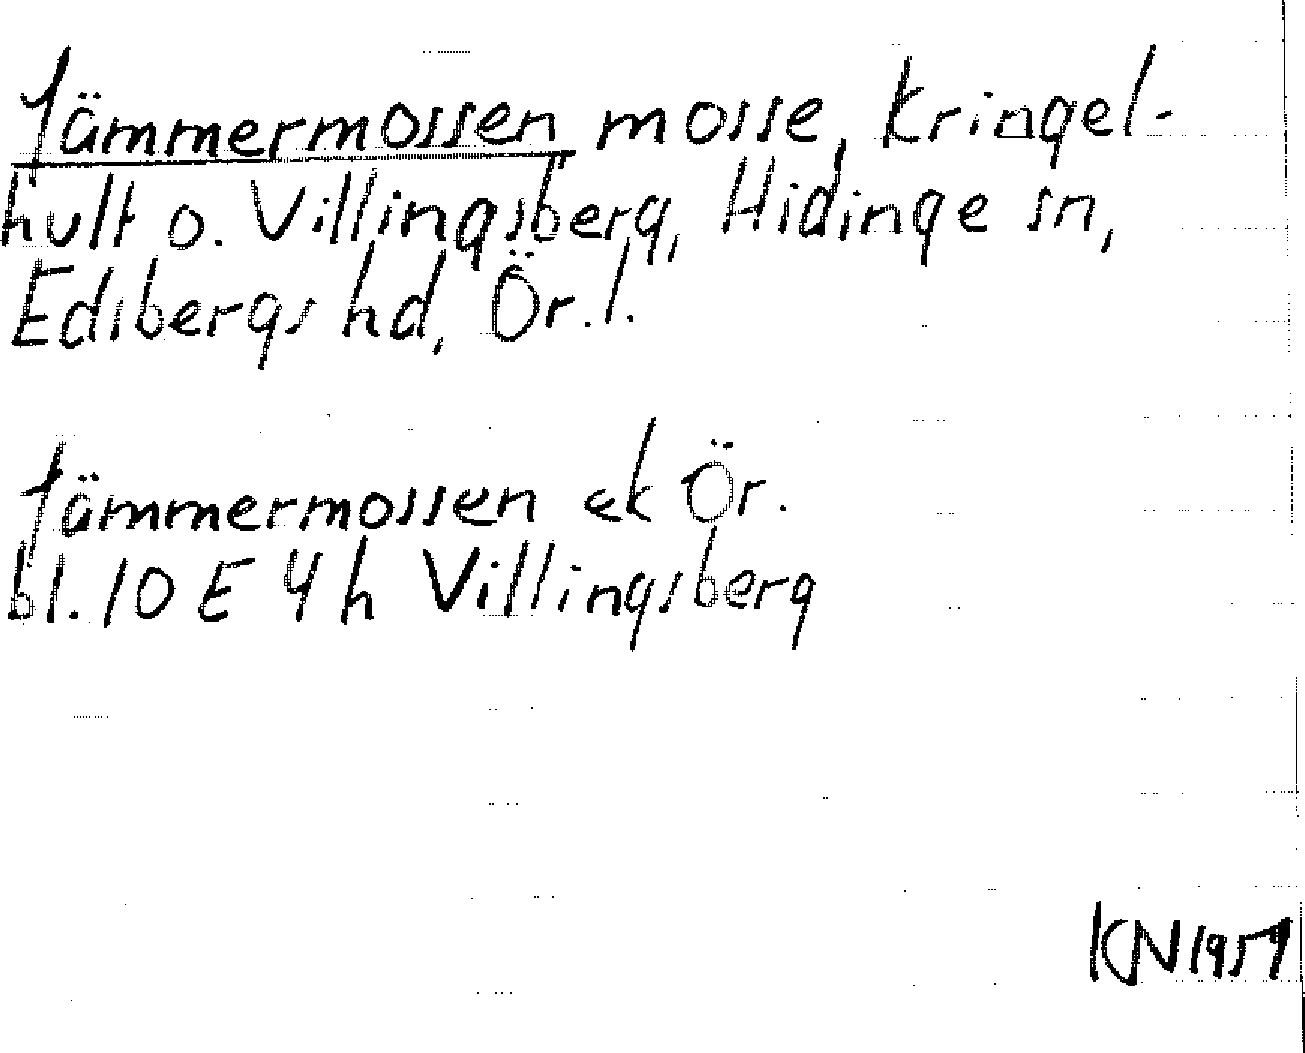 Jämmermossen mosse, Kringel-
hult o. Villingsberg, Hidinge sn,
Edsbergs hd, Ör. l.
Jämmermossen ek Ör.
bl. 10 E 4 h Villingsberg
KN 1957